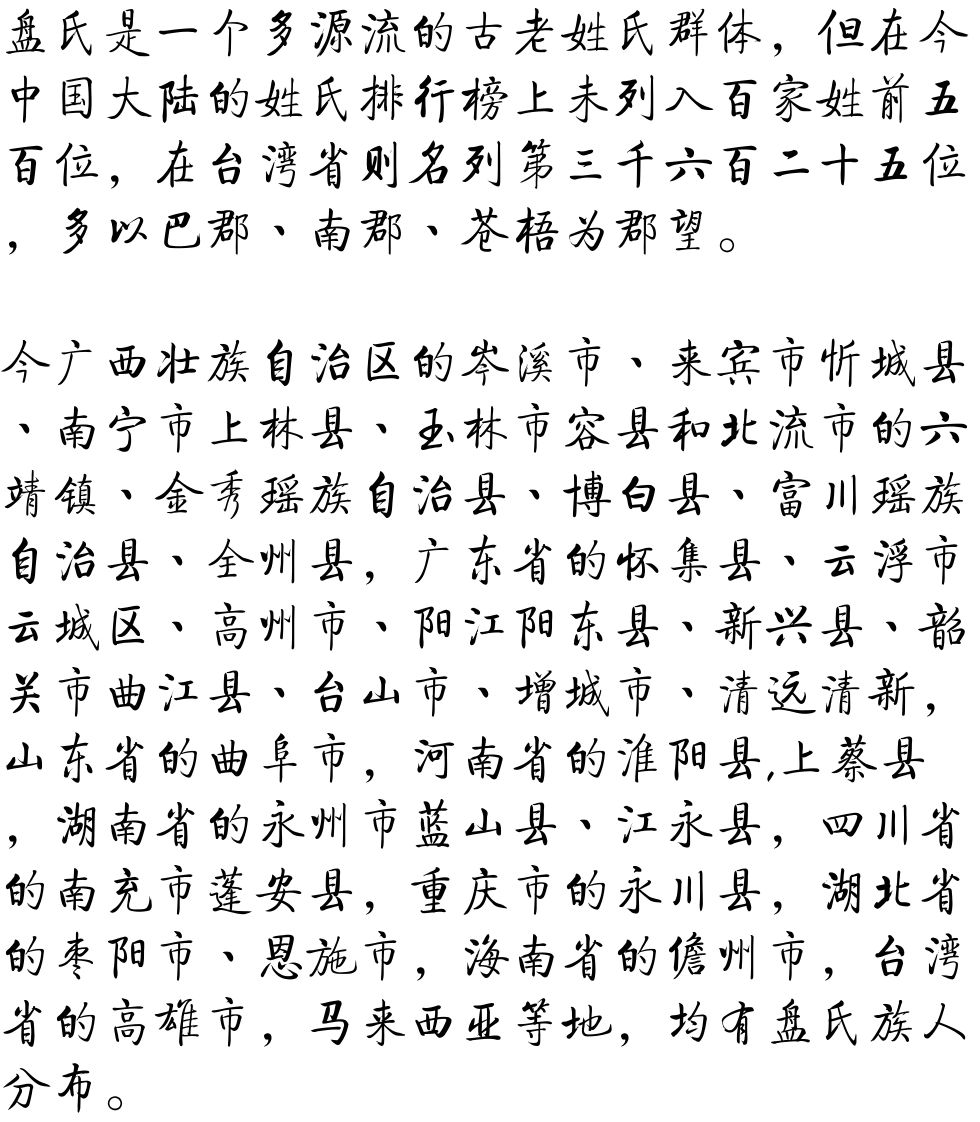 盘氏是一个多源流的古老姓氏群体，但在今
中国大陆的姓氏排行榜上未列入百家姓前五
百位，在台湾省则名列第三千六百二十五位
，多以巴郡、南郡、苍梧为郡望。
今广西壮族自治区的岑溪市、来宾市忻城县
、南宁市上林县、玉林市容县和北流市的六
靖镇、金秀瑶族自治县、博白县、富川瑶族
自治县、全州县，广东省的怀集县、云浮市
云城区、高州市、阳江阳东县、新兴县、韶
关市曲江县、台山市、增城市、清远清新，
山东省的曲阜市，河南省的淮阳县,上蔡县
，湖南省的永州市蓝山县、江永县，四川省
的南充市蓬安县，重庆市的永川县，湖北省
的枣阳市、恩施市，海南省的儋州市，台湾
省的高雄市，马来西亚等地，均有盘氏族人
分布。